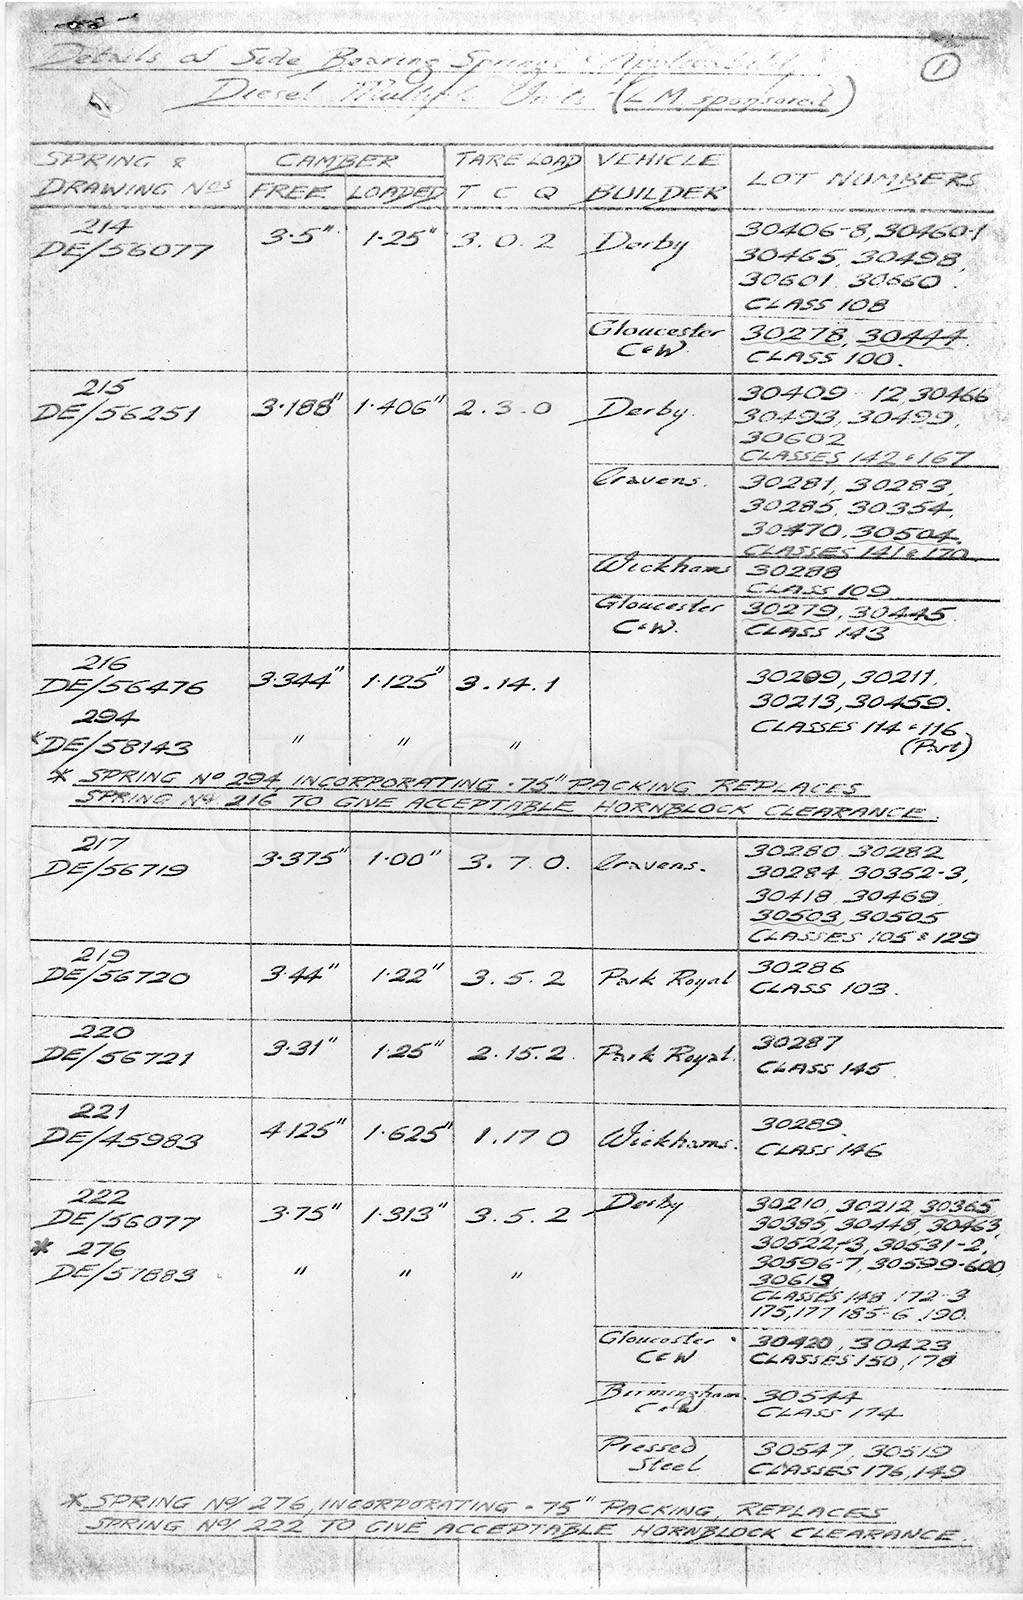 Details of Side Bearing Springs & Applicability
Diesel Multiple Units (LM sponsored)
1
SPRING & DRAWING Nos CAMBER TARE LOAD VEHICLE BUILDER LOT NUMBERS
FREE LOADED T C Q
214
DE/56077 3·5" 1·25" 3.0.2 Derby 30406-8, 30460-1
30465, 30498,
30601, 30660.
CLASS 108
Gloucester C&W 30278, 30444.
CLASS 100.
215
DE/56251 3·188" 1·406" 2.3.0 Derby. 30409-12, 30466
30493, 30499,
30602
CLASSES 142 & 167
Cravens. 30281, 30283,
30285, 30354,
30470, 30504,
CLASSES 141 & 170
Wickhams 30288
CLASS 109
Gloucester C&W. 30279, 30445
CLASS 143
216
DE/56476 3·344" 1·125" 3.14.1 30209, 30211,
30213, 30459.
CLASSES 114 & 116
(Part)
294
* DE/58143 " " "
* SPRING No 294, INCORPORATING ·75" PACKING REPLACES
SPRING No 216 TO GIVE ACCEPTABLE HORNBLOCK CLEARANCE.
217
DE/56719 3·375" 1·00" 3.7.0. Cravens. 30280 30282
30284 30352-3,
30418, 30469,
30503, 30505
CLASSES 105 & 129
219
DE/56720 3·44" 1·22" 3.5.2 Park Royal 30286
CLASS 103.
220
DE/56721 3·31" 1·25" 2.15.2. Park Royal. 30287
CLASS 145
221
DE/45983 4·125" 1·625" 1.17 0 Wickhams. 30289
CLASS 146
222
DE/56077 3·75" 1·313" 3.5.2 Derby 30210, 30212, 30365,
30385, 30448, 30463,
30522-3, 30531-2,
30596-7, 30599-600,
30613
CLASSES 148, 172-3
175, 177 185-6, 190.
* 276
DE/57883 " " "
Gloucester C&W 30420, 30423
CLASSES 150, 178
Birmingham C&W 30544
CLASS 174
Pressed Steel 30547, 30519
CLASSES 176, 149
* SPRING No 276, INCORPORATING ·75" PACKING, REPLACES
SPRING No 222 TO GIVE ACCEPTABLE HORNBLOCK CLEARANCE.